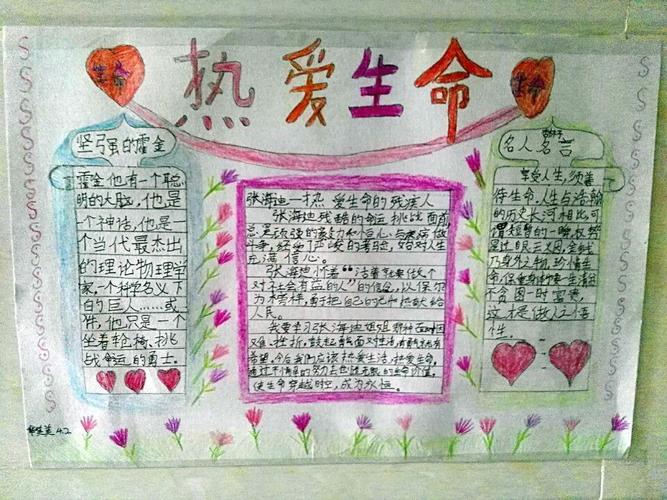 热爱生命
生命
生命
坚强的霍金
霍金他有一个聪
明的大脑,他是
一个神话,他是一
个当代最杰出
的理论物理学
家,一个科学名义下
的巨人……或
许,他只是一个
坐着轮椅、挑
战命运的勇士。
张海迪一热爱生命的残疾人
张海迪残酷的命运挑战面前
总是顽强的毅力和信心与疾病做
斗争,经受了严峻的考验,始对人生
充满信心。
张海迪怀着“活着就要做个
对社会有益的人”的信念,以保尔
为榜样,勇于把自己的光和热献给
人民。
我要学习张海迪姐姐那种面对困
难、挫折,鼓起
希望。今后我们应该热爱生活,热爱生命,
使生命穿越时空,成为永恒。
名人名言
享受人生,须善
待生命,人生与浩瀚
的历史长河相比可
谓短暂的一瞬,权势
是过眼云烟,金钱
乃身外之物,珍惜生
命,保重身体要生活
不贪图一时富贵,
这才是做人之悟
性。
4.2